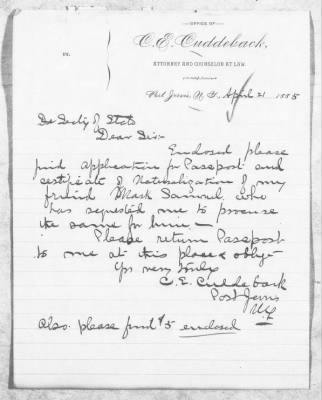 OFFICE OF
C. E. Cuddeback,
ATTORNEY AND COUNSELOR AT LAW.
Port Jervis, N. Y., April 21 1885
To Secty of State
Dear Sir:-
Enclosed please
find application for Passport and
certificate of Naturalization of my
friend Mark Samuel, who
has requested me to procure
the same for him.—
Please return Passport
to me at this place & oblige
Yrs very truly
C. E. Cuddeback
Port Jervis
N.Y.
Also please find $5 enclosed